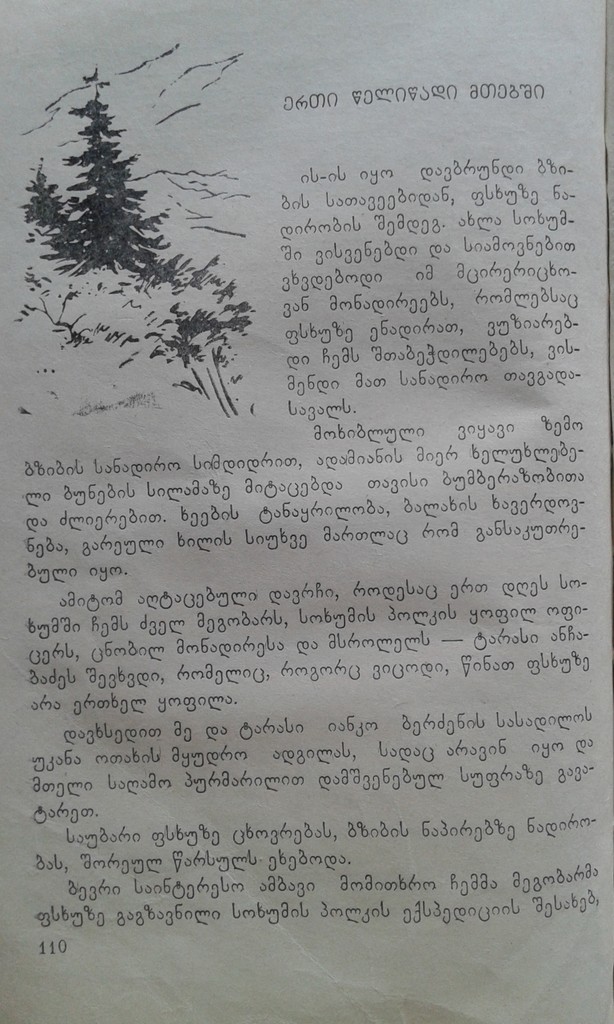 ერთი წელიწადი მთებში
ის-ის იყო დავბრუნდი ბზი-
ბის სათავეებიდან, ფსხუზე ნა-
დირობის შემდეგ. ახლა სოხუმ-
ში ვისვენებდი და სიამოვნებით
ვხვდებოდი იმ მცირერიცხო-
ვან მონადირეებს, რომლებსაც
ფსხუზე ენადირათ, ვუზიარებ-
დი ჩემს შთაბეჭდილებებს, ვის-
მენდი მათ სანადირო თავგადა-
სავალს.
მოხიბლული ვიყავი ზემო
ბზიბის სანადირო სიმდიდრით, ადამიანის მიერ ხელუხლებე-
ლი ბუნების სილამაზე მიტაცებდა თავისი ბუმბერაზობითა
და ძლიერებით. ხეების ტანაყრილობა, ბალახის ხავერდოვ-
ნება, გარეული ხილის სიუხვე მართლაც რომ განსაკუთრე-
ბული იყო.
ამიტომ აღტაცებული დავრჩი, როდესაც ერთ დღეს სო-
ხუმში ჩემს ძველ მეგობარს, სოხუმის პოლკის ყოფილ ოფი-
ცერს, ცნობილ მონადირესა და მსროლელს — ტარასი ანჩა-
ბაძეს შევხვდი, რომელიც, როგორც ვიცოდი, წინათ ფსხუზე
არა ერთხელ ყოფილა.
დავხსედით მე და ტარასი იანკო ბერძენის სასადილოს
უკანა ოთახის მყუდრო ადგილას, სადაც არავინ იყო და
მთელი საღამო პურმარილით დამშვენებულ სუფრაზე გავა-
ტარეთ.
საუბარი ფსხუზე ცხოვრებას, ბზიბის ნაპირებზე ნადირო-
ბას, შორეულ წარსულს ეხებოდა.
ბევრი საინტერესო ამბავი მომითხრო ჩემმა მეგობარმა
ფსხუზე გაგზავნილი სოხუმის პოლკის ექსპედიციის შესახებ,
110